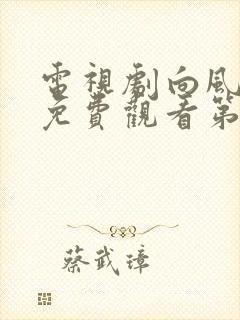 電視劇向風
免費觀看第
蔡武璋